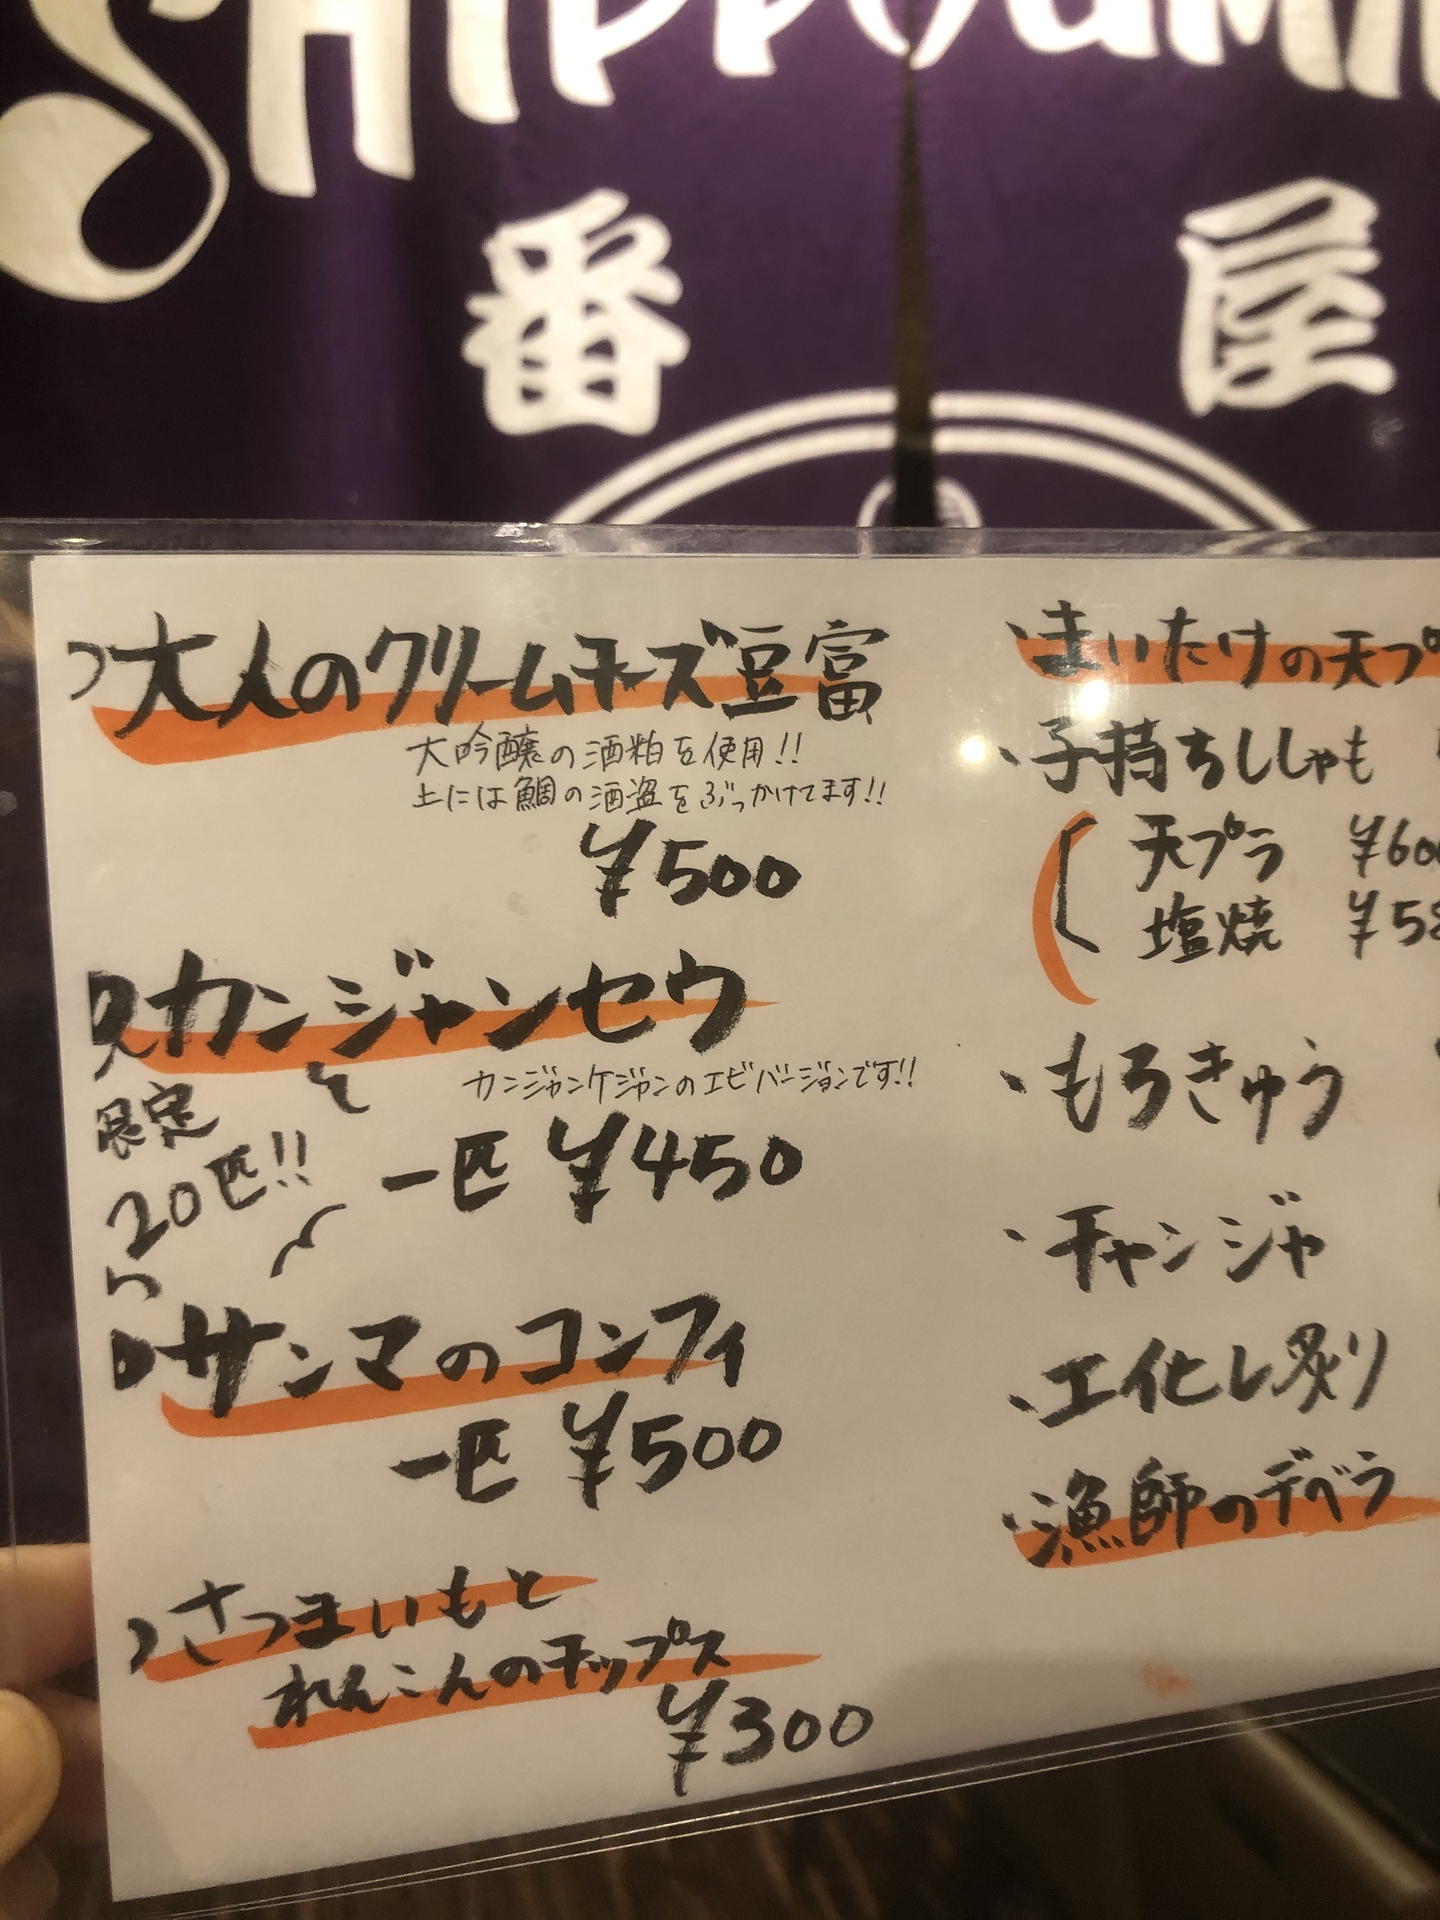 番屋
大人のクリームチーズ豆富
大吟醸の酒粕を使用!!
上には鯛の酒盗をぶっかけてます!!
¥500
カンジャンセウ
カンジャンケジャンのエビバージョンです!!
限定
20匹!!
一匹 ¥450
サンマのコンフィ
一匹 ¥500
さつまいもと
れんこんのチップス
¥300
・まいたけの天プ
・子持ちししゃも
天プラ ¥600
塩焼 ¥58
・もろきゅう
・チャンジャ
・エイヒレ炙り
・漁師のデベラ